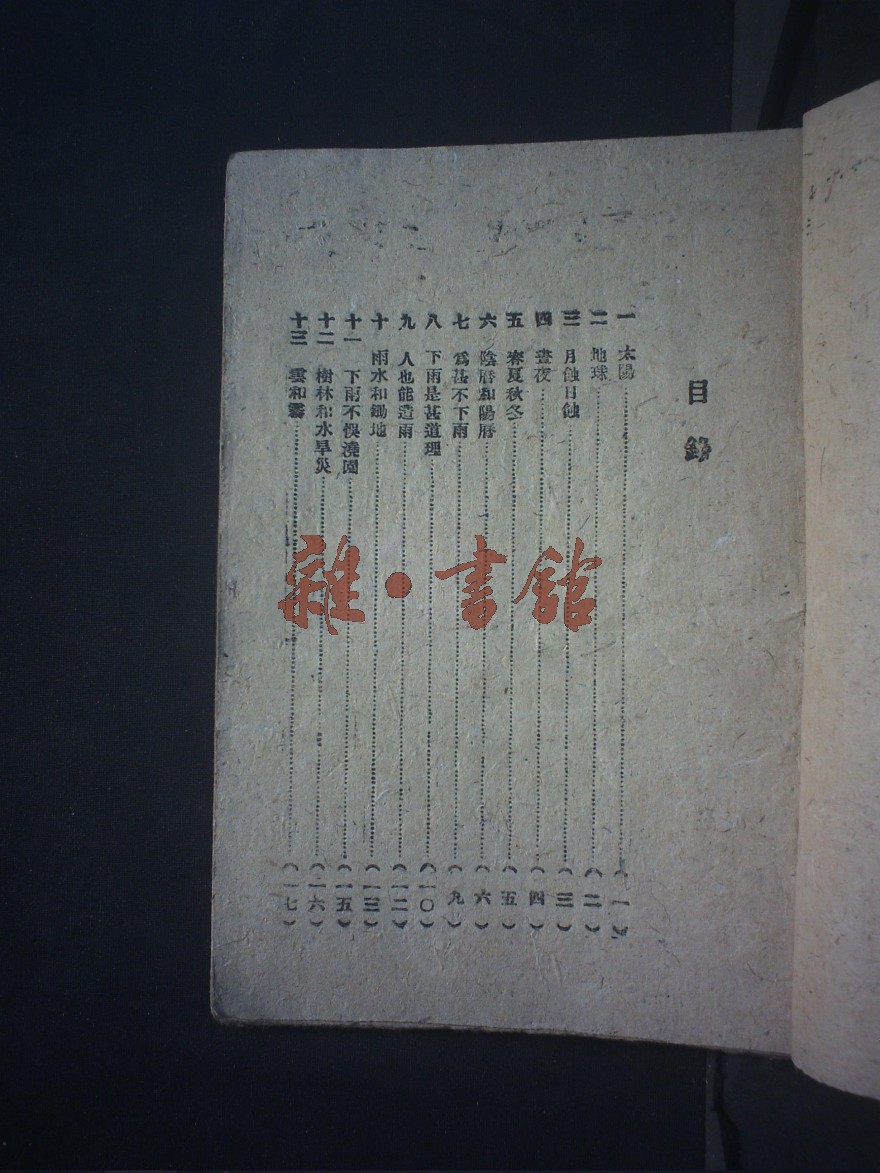 目錄
一 太陽……(一)
二 地球……(二)
三 月蝕日蝕……(三)
四 晝夜……(四)
五 春夏秋冬……(五)
六 陰曆和陽曆……(六)
七 爲甚不下雨……(九)
八 下雨是甚道理……(一〇)
九 人也能造雨……(一二)
十 雨水和鋤地……(一三)
十一 下雨不悞澆園……(一五)
十二 樹林和水旱災……(一六)
十三 雲和霧……(一七)
雜·書館